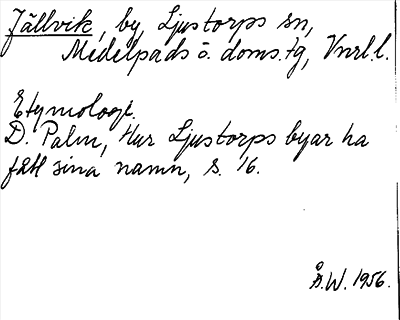 Jällvik, by, Ljustorps sn,
Medelpads ö. doms:tg, Vnrl.l.
Etymologi.
D. Palm, Hur Ljustorps byar ha
fått sina namn, s. 16.
Å.W. 1956.